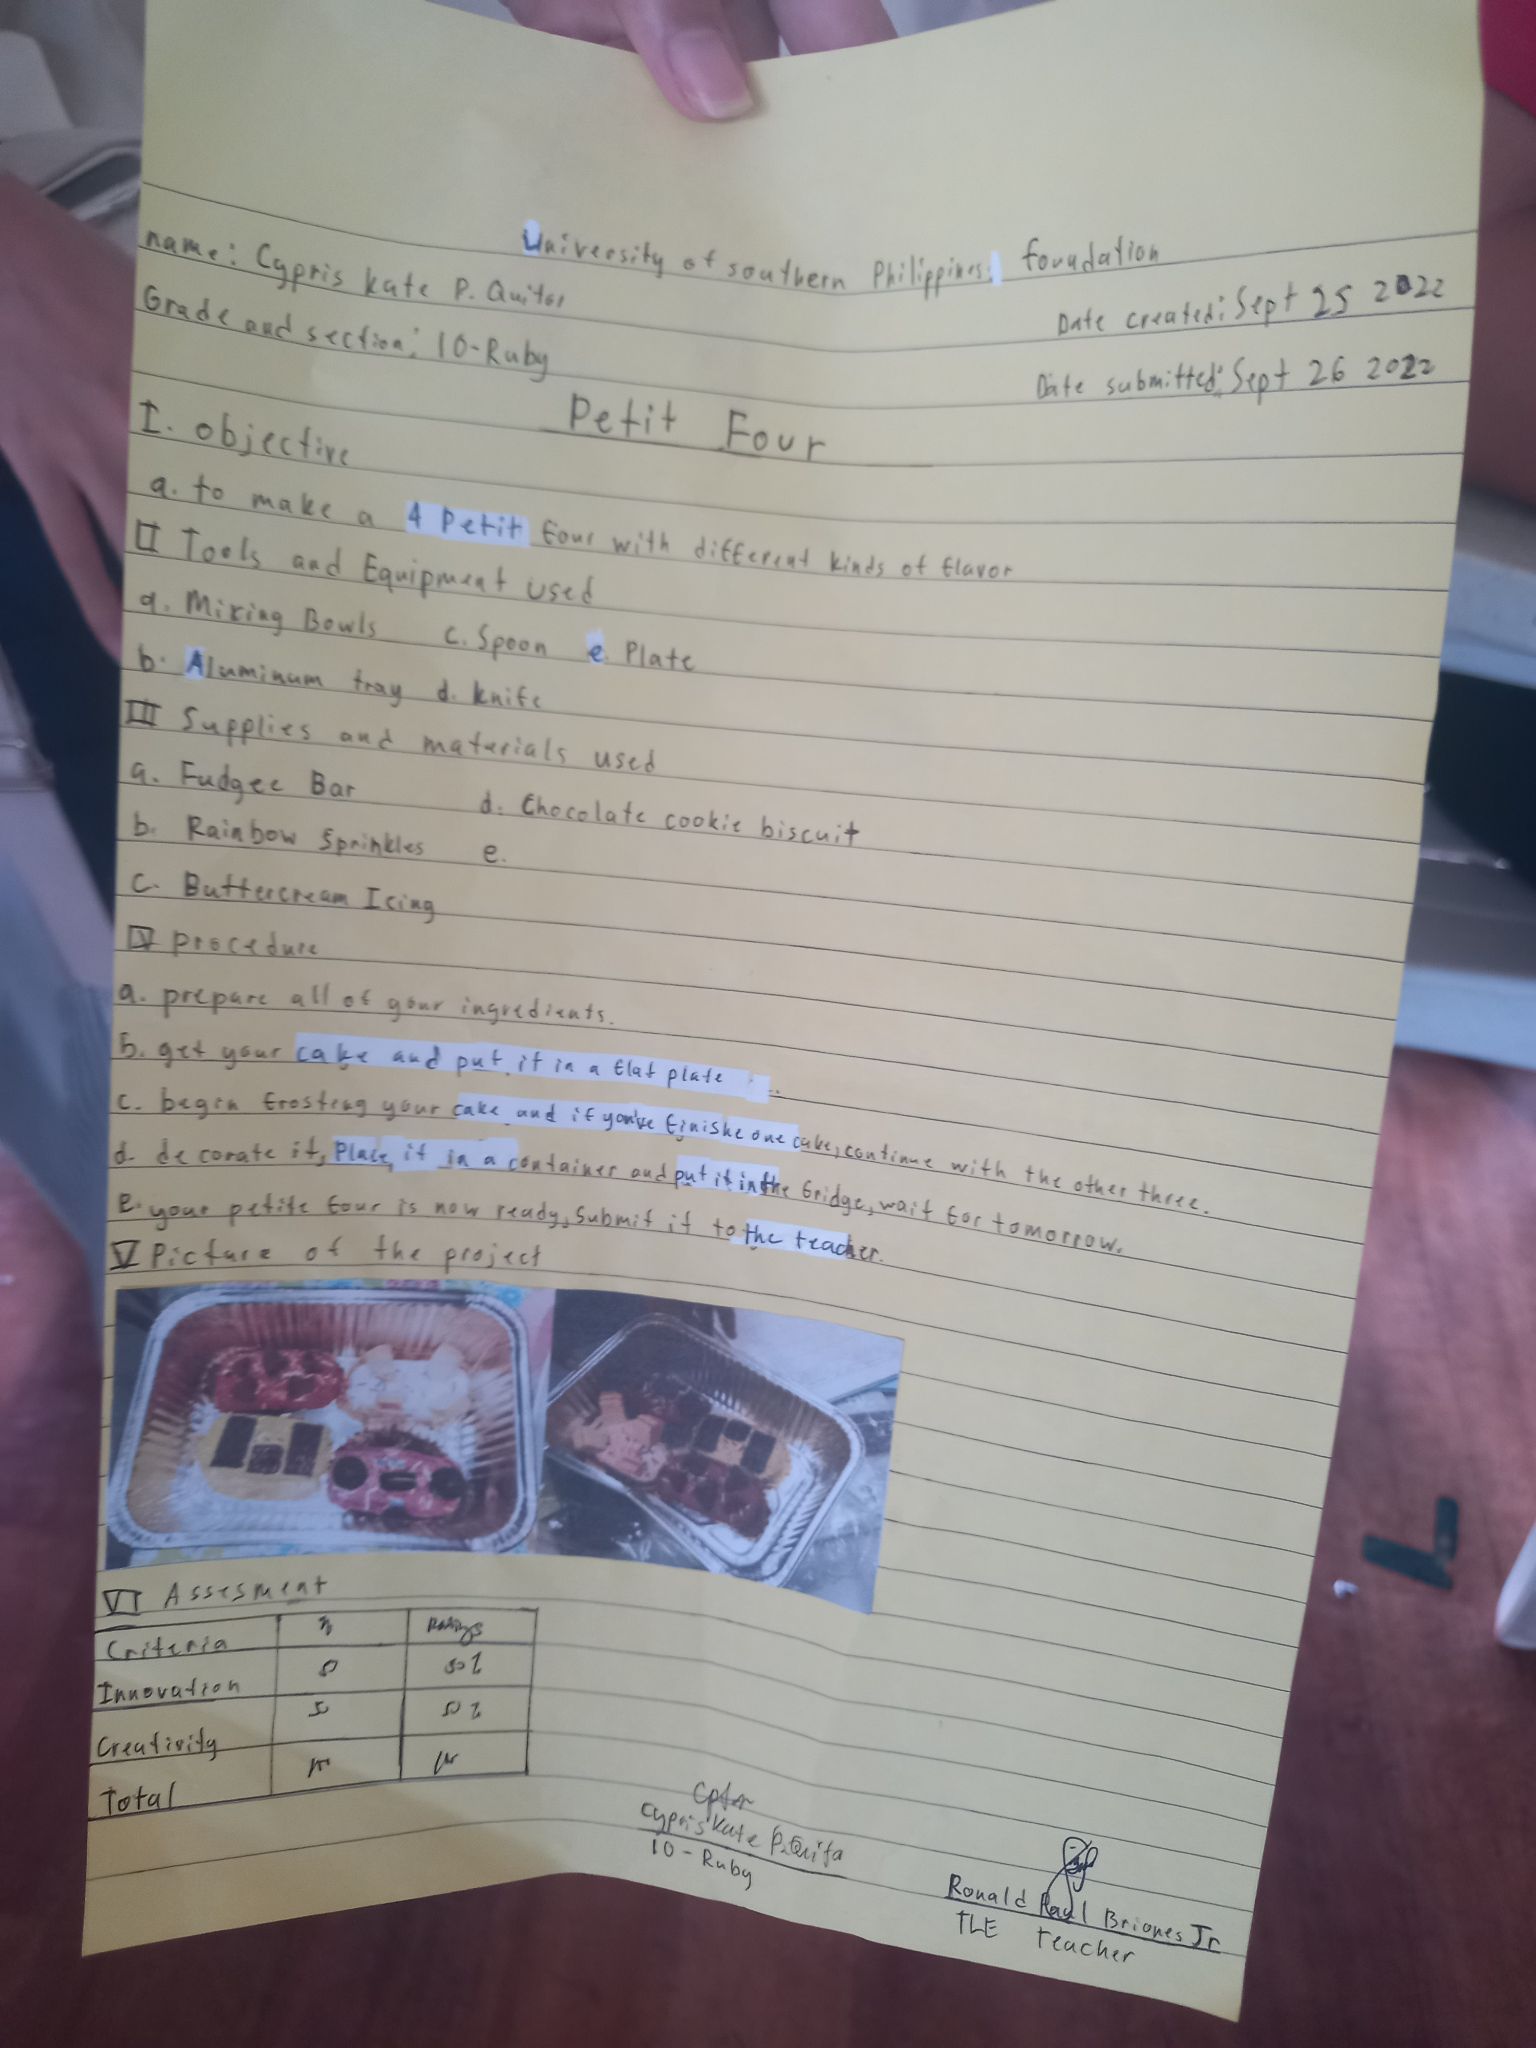 University of southern Philippines foundation
name: Cypris kate P. Quiter
Date created: Sept 25 2022
Grade and section: 10-Ruby
Date submitted: Sept 26 2022
Petit Four
I. objective
a. to make a 4 Petit four with different kinds of flavor
II Tools and Equipment used
a. Mixing Bowls c. Spoon e. Plate
b. Aluminum tray d. knife
III Supplies and materials used
a. Fudgee Bar d. Chocolate cookie biscuit
b. Rainbow Sprinkles e.
c. Buttercream Icing
IV procedure
a. prepare all of your ingredients.
b. get your cake and put it in a flat plate .
c. begin frosting your cake and if you've finishe one cake, continue with the other three.
d. decorate it, Place it in a container and put it in the fridge, wait for tomorrow.
e. your petite four is now ready, submit it to the teacher.
V Picture of the project
VI Assesment
Criteria % Ratings
Innovation 50 50%
Creativity 50 50%
Total
Cypris Kate
10-Ruby
Ronald Raul Briones Jr
TLE teacher